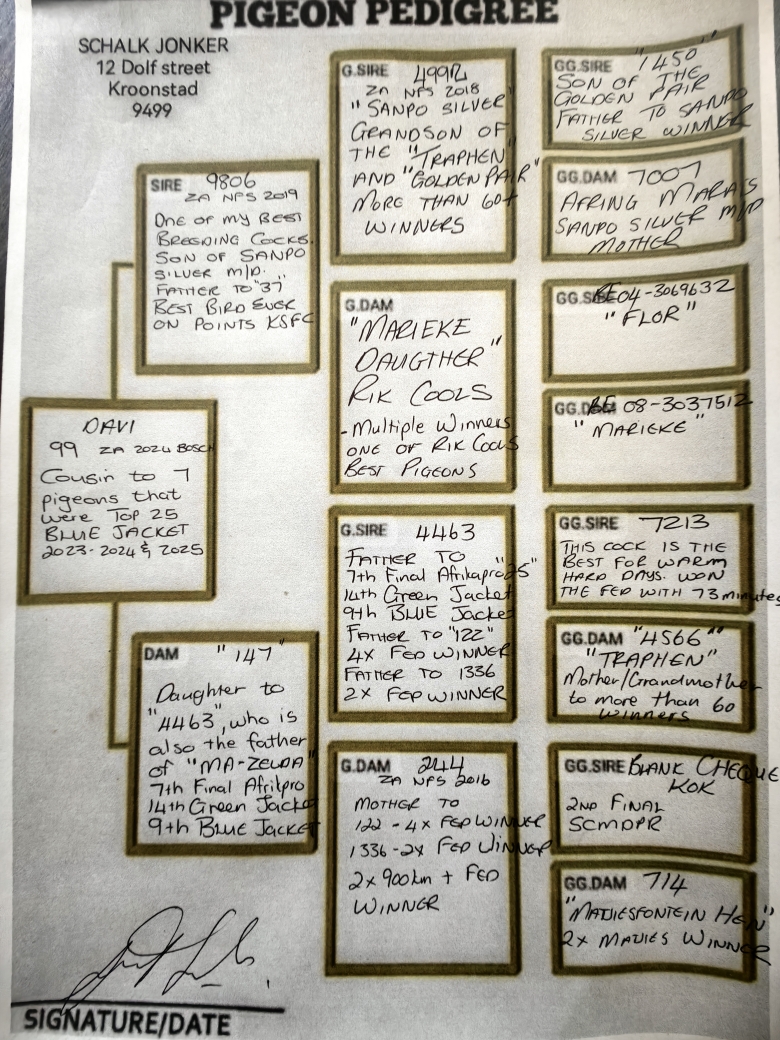 PIGEON PEDIGREE
SCHALK JONKER
12 Dolf street
Kroonstad
9499
DAVI
99 ZA 2024 BOSCH
Cousin to 7
pigeons that
were Top 25
BLUE JACKET
2023-2024 & 2025
SIRE 9806
ZA NPS 2019
ONE OF MY BEST
BREEDING COCKS.
SON OF SANPO
SILVER M/D.
FATHER TO "37"
BEST BIRD EVER
ON POINTS KSFC
DAM "147"
Daughter to
"4463", who is
also the father
of "MA-ZELDA"
7th Final Afrikpro
14th Green Jacket
9th BLUE JACKET
G.SIRE 4992
ZA NPS 2018
"SANPO SILVER"
GRANDSON OF
THE "TRAPHEN"
AND "GOLDEN PAIR"
MORE THAN 60+
WINNERS
G.DAM
"MARIEKE
DAUGTHER"
RIK COOLS
-Multiple Winners
ONE OF RIK COOLS
BEST PIGEONS
G.SIRE 4463
FATHER TO
7th Final Afrikapro "25"
14th Green Jacket
9th BLUE JACKET
FATHER TO "122"
4X FED WINNER
FATHER TO 1336
2X FED WINNER
G.DAM 244
ZA NPS 2016
MOTHER TO
122 - 4X FED WINNER
1336 - 2X FED WINNER
2x 900km + FED
WINNER
GG.SIRE "1450"
SON OF THE
GOLDEN PAIR
FATHER TO SANPO
SILVER WINNER
GG.DAM 7007
AFRING MARAIS
SANPO SILVER M/D
MOTHER
GG.SIRE BE04-3069632
"FLOR"
GG.DAM BE 08-3037512
"MARIEKE"
GG.SIRE 7213
THIS COCK IS THE
BEST FOR WARM
HARD DAYS. WON
THE FED WITH 73 minutes
GG.DAM "4566"
"TRAPHEN"
Mother/Grandmother
to more than 60
winners
GG.SIRE BLANK CHEQUE
KOK
2ND FINAL
SCMDPR
GG.DAM 714
"MATJIESFONTEIN HEN"
2x MATJIES WINNER
SIGNATURE/DATE